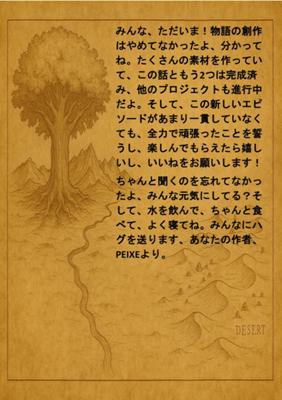 みんな、ただいま！物語の創作
はやめてなかったよ、分かって
ね。たくさんの素材を作ってい
て、この話ともう2つは完成済
み、他のプロジェクトも進行中
だよ。そして、この新しいエピ
ソードがあまり一貫していなく
ても、全力で頑張ったことを誓
うし、楽しんでもらえたら嬉し
いし、いいねをお願いします！
ちゃんと聞くのを忘れてなかっ
たよ、みんな元気にしてる？そ
して、水を飲んで、ちゃんと食
べて、よく寝てね。みんなにハ
グを送ります、あなたの作者、
PEIXEより。
DESERT